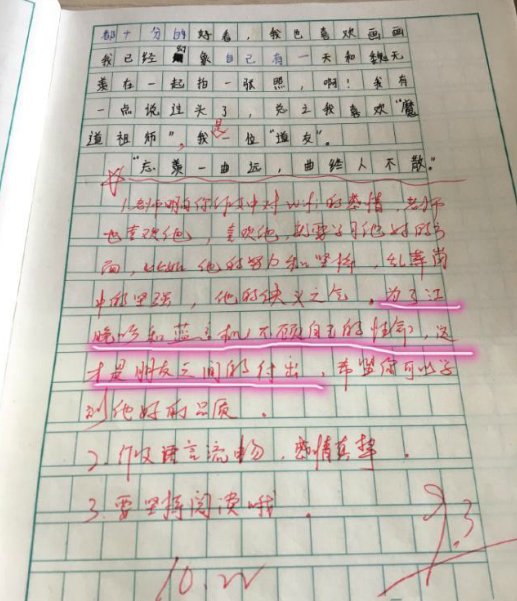 都十分的好看，我也喜欢画画
我已经幻象自己有一天和魏无
羡在一起拍一张照，啊！我有
一点说过头了，总之我喜欢“魔
道祖师”，我是一位“道友”。
“忘羡一曲远，曲终人不散。”
1.老师明白你作文中对wifi的感情，老师
也喜欢他，喜欢他，就要学习他好的方
面，比如他的努力和坚持，乱葬岗
中的坚强，他的侠义之气。为了江
晚吟和蓝忘机不顾自己的性命，这
才是朋友之间的付出，希望你可以学
到他好的品质。
2.作文语言流畅，感情真挚。
3.要坚持阅读哦。
10.22